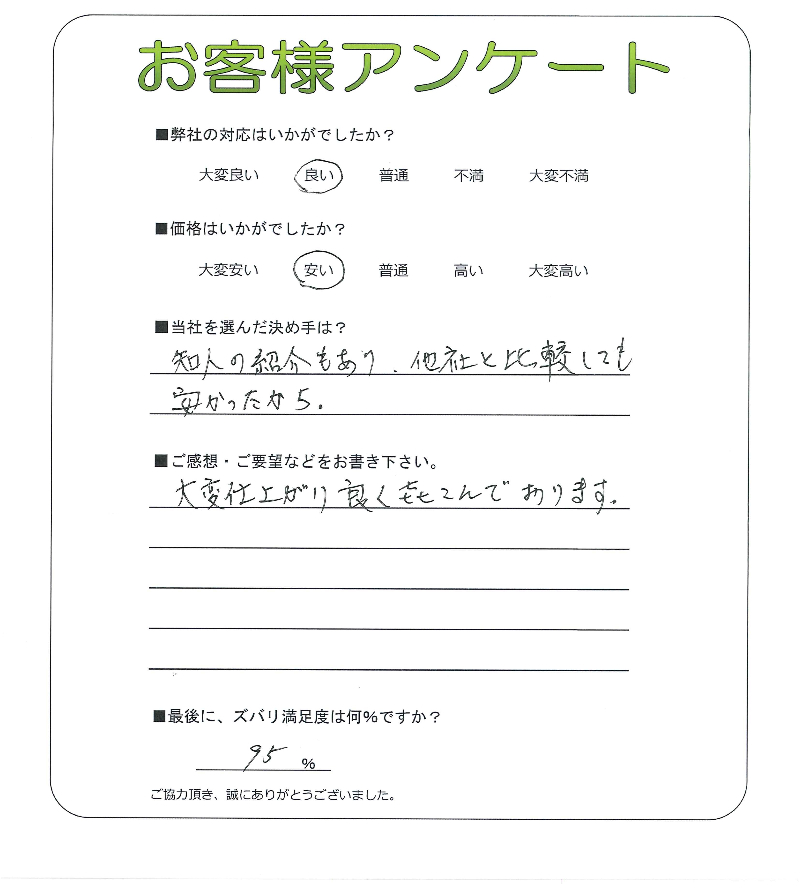 お客様アンケート
■弊社の対応はいかがでしたか？
大変良い 良い 普通 不満 大変不満
■価格はいかがでしたか？
大変安い 安い 普通 高い 大変高い
■当社を選んだ決め手は？
知人の紹介もあり、他社と比較しても
安かったから.
■ご感想・ご要望などをお書き下さい。
大変仕上がり良く㐂こんであります.
■最後に、ズバリ満足度は何%ですか？
95 %
ご協力頂き、誠にありがとうございました。